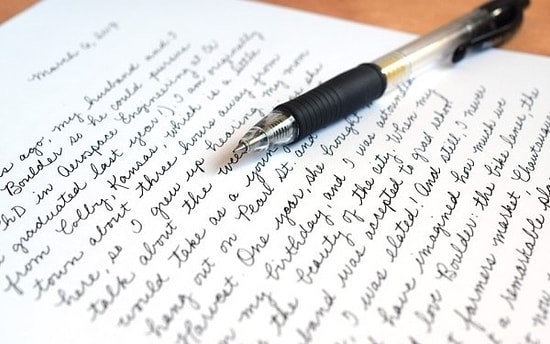 March 9, 2009
ago, my husband and I
Boulder so he could pursue
PhD in Aerospace Engineering at
graduated last year!) I am originally
from Colby, Kansas, which is a little
town about three hours away from
here, so I grew up hearing my mom
talk about the
would take as a young
hang out on Pearl St. and
Harvest. One year, she brought
on my birthday, and I was astounded
the beauty of the city. When my
husband was accepted to grad school
I was elated! And still, I never
have imagined how much we
love Boulder: the bike lanes, the
farmers market, Chautauqua
a remarkable